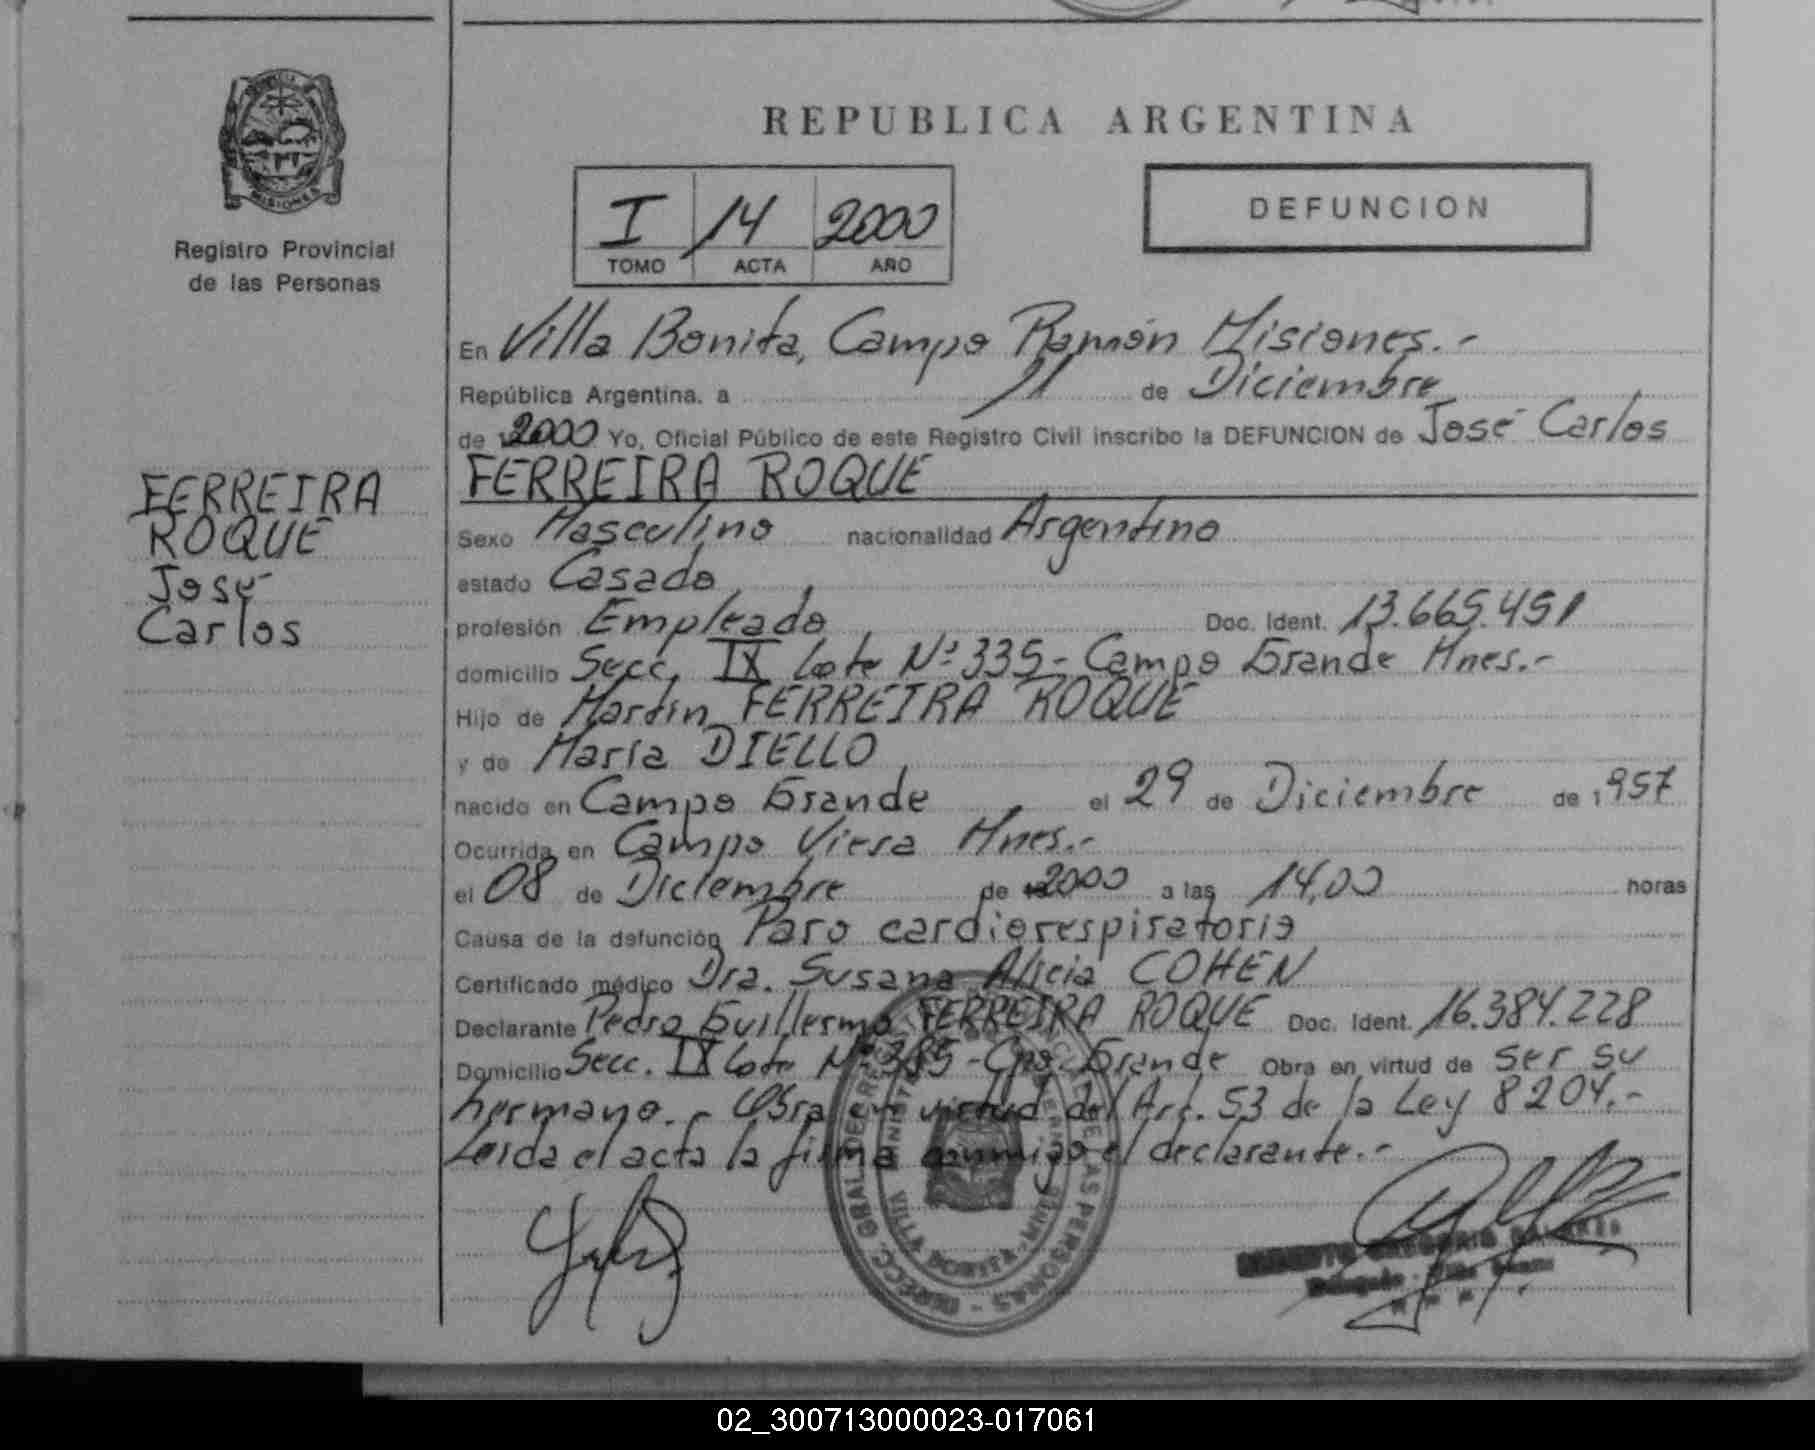 REPUBLICA ARGENTINA
MISIONES
Registro Provincial
de las Personas
I 14 2000
TOMO ACTA AÑO
DEFUNCION
En Villa Bonita, Campo Ramón Misiones.-
República Argentina, a 11 de Diciembre
de 2000 Yo, Oficial Público de este Registro Civil inscribo la DEFUNCION de José Carlos
FERREIRA ROQUE
FERREIRA
ROQUE
José
Carlos
Sexo Masculino nacionalidad Argentino
estado Casado
profesión Empleado Doc. Ident. 13.665.451
domicilio Secc. IX Lote Nº 335- Campo Grande Mnes.-
Hijo de Martín FERREIRA ROQUE
y de María DIELLO
nacido en Campo Grande el 29 de Diciembre de 1957
Ocurrida en Campo Viera Mnes.-
el 08 de Diciembre de 2000 a las 14,00 horas
Causa de la defunción Paro cardiorespiratorio
Certificado médico Dra. Susana Alicia COHEN
Declarante Pedro Guillermo FERREIRA ROQUE Doc. Ident. 16.384.228
Domicilio Secc. IX Lote Nº 335-Cpo. Grande Obra en virtud de ser su
hermano.- Obra en virtud del Art. 53 de la Ley 8204.-
Leida el acta la firma conmigo el declarante.-
02_300713000023-017061